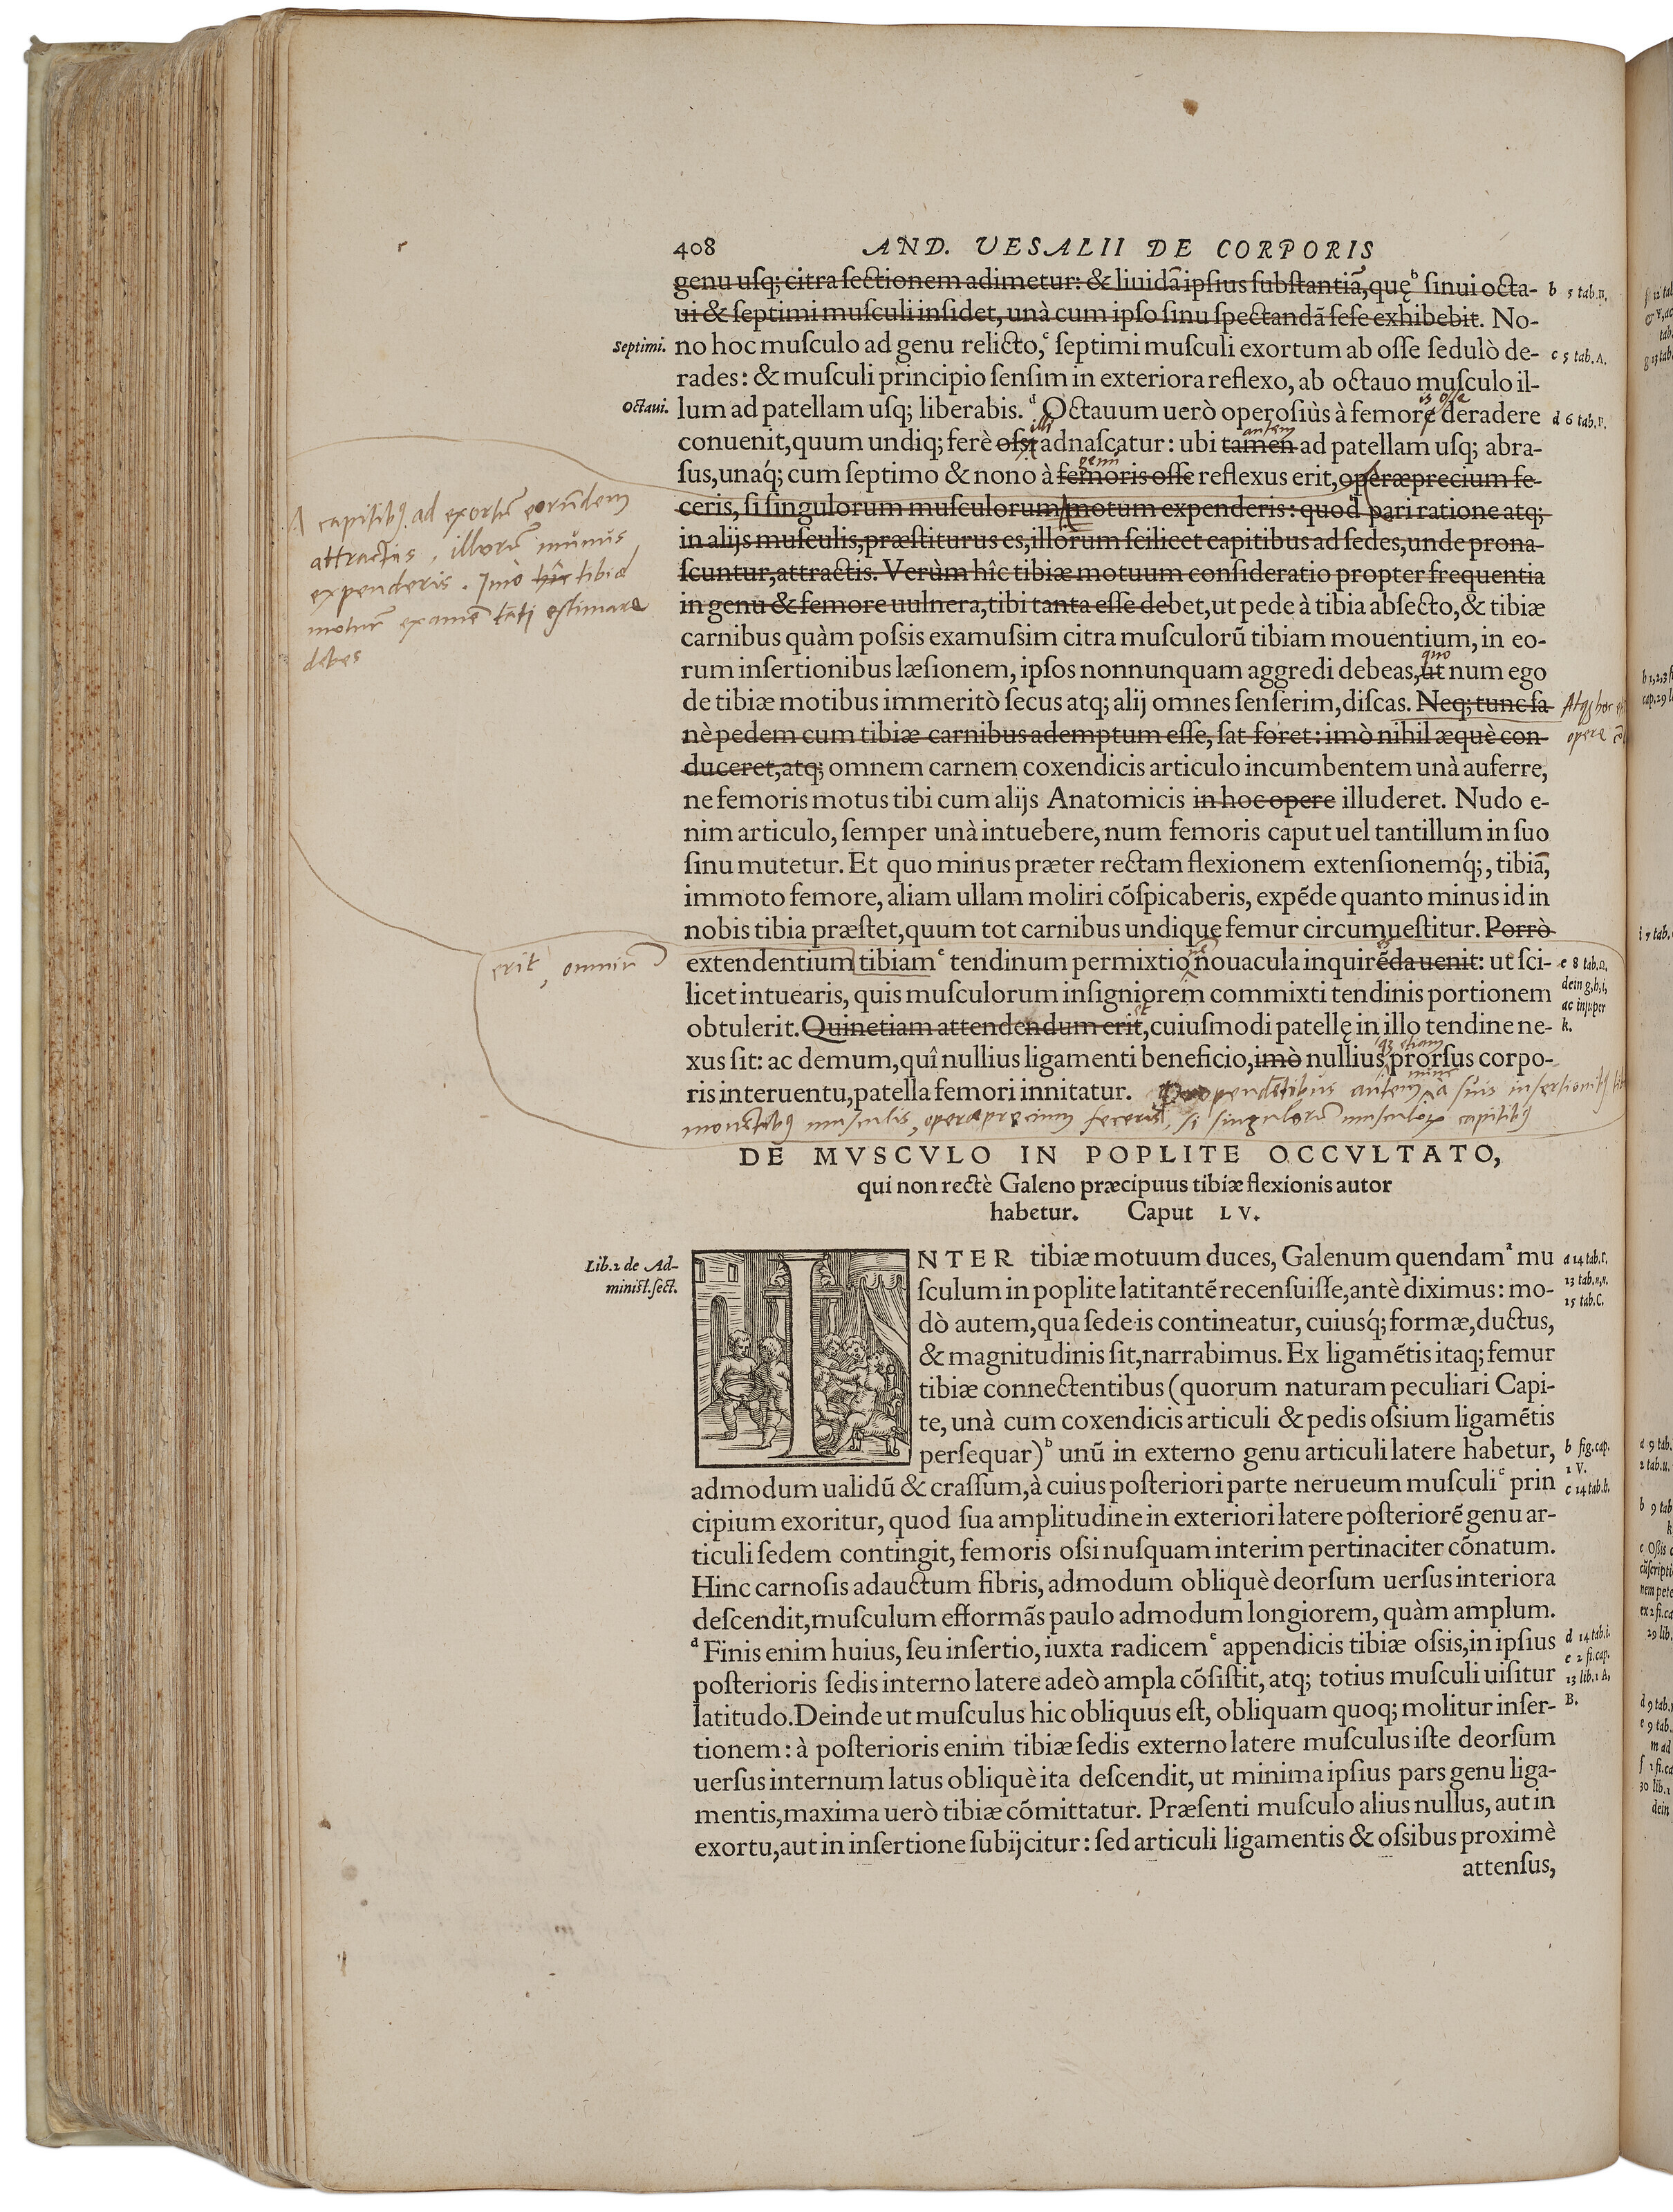 408 AND. VESALII DE CORPORIS
genu uſq; citra ſectionem adimetur: & liuidā ipſius ſubſtantiā, quę ᵇ ſinui octa- b 5 tab.υ.
ui & ſeptimi muſculi inſidet, unà cum ipſo ſinu ſpectandā ſeſe exhibebit. No-
Septimi. no hoc muſculo ad genu relicto, ᶜ ſeptimi muſculi exortum ab oſſe ſedulò de- c 5 tab.Λ.
rades: & muſculi principio ſenſim in exteriora reflexo, ab octauo muſculo il-
is oſſe
Octaui. lum ad patellam uſq; liberabis. ᵈ Octauum uerò operoſiùs à femore deradere d 6 tab.Γ.
illi autem
conuenit, quum undiq; ferè oſsi adnaſcatur: ubi tamen ad patellam uſq; abra-
genu
ſus, unaq́; cum ſeptimo & nono à femoris oſſe reflexus erit, operæprecium fe-
ceris, ſi ſingulorum muſculorum motum expenderis: quod pari ratione atq;
in alijs muſculis, præſtiturus es, illorum ſcilicet capitibus ad ſedes, unde prona-
ſcuntur, attractis. Verùm hîc tibiæ motuum conſideratio propter frequentia
in genu & femore uulnera, tibi tanta eſſe debet, ut pede à tibia abſecto, & tibiæ
A capitibꝰ ad exortũ eorũdem
attractis, illorũ munus
expenderis. Imò hîc tibiæ
motuũ examẽ tãti eſtimare
debes
carnibus quàm poſsis examuſsim citra muſculorũ tibiam mouentium, in eo-
quo
rum inſertionibus læſionem, ipſos nonnunquam aggredi debeas, ut num ego
de tibiæ motibus immeritò ſecus atq; alij omnes ſenſerim, diſcas. Neq; tunc ſa- Atq; hoc
nè pedem cum tibiæ carnibus ademptum eſſe, ſat foret: imò nihil æquè con- opere
duceret, atq; omnem carnem coxendicis articulo incumbentem unà auferre,
ne femoris motus tibi cum alijs Anatomicis in hoc opere illuderet. Nudo e-
nim articulo, ſemper unà intuebere, num femoris caput uel tantillum in ſuo
ſinu mutetur. Et quo minus præter rectam flexionem extenſionemq́;, tibiā,
immoto femore, aliam ullam moliri cõſpicaberis, expẽde quanto minus id in
nobis tibia præſtet, quum tot carnibus undique femur circumueſtitur. Porrò
erit, omniũ extendentium tibiam ᵉ tendinum permixtio nouacula inquirẽda uenit: ut ſci- e 8 tab.Ω.
licet intuearis, quis muſculorum inſigniorem commixti tendinis portionem dein g,h,i,
et ac inſuper
obtulerit. Quinetiam attendendum erit, cuiuſmodi patellę in illo tendine ne- k.
etiam
xus ſit: ac demum, quî nullius ligamenti beneficio, imò nullius prorſus corpo-
ris interuentu, patella femori innitatur. pendẽtibus autem à ſuis inſertionibꝰ
mouẽtibꝰ muſculis, operæprecium feceris, ſi ſingulorũ muſculorũ capitibꝰ
DE MVSCVLO IN POPLITE OCCVLTATO,
qui non rectè Galeno præcipuus tibiæ flexionis autor
habetur. Caput LV.
Lib.2 de Ad-
miniſt.ſect.
INTER tibiæ motuum duces, Galenum quendam ᵃ mu a 14 tab.Γ,
ſculum in poplite latitantẽ recenſuiſſe, antè diximus: mo- 13 tab.
dò autem, qua ſede is contineatur, cuiusq́; formæ, ductus, 15 tab.C.
& magnitudinis ſit, narrabimus. Ex ligamẽtis itaq; femur
tibiæ connectentibus (quorum naturam peculiari Capi-
te, unà cum coxendicis articuli & pedis oſsium ligamẽtis
perſequar) ᵇ unũ in externo genu articuli latere habetur, b fig.cap.
1 V.
admodum ualidũ & craſſum, à cuius poſteriori parte nerueum muſculi ᶜ prin c 14 tab.h.
cipium exoritur, quod ſua amplitudine in exteriori latere poſteriorẽ genu ar-
ticuli ſedem contingit, femoris oſsi nuſquam interim pertinaciter cõnatum.
Hinc carnoſis adauctum fibris, admodum obliquè deorſum uerſus interiora
deſcendit, muſculum efformãs paulo admodum longiorem, quàm amplum.
ᵈ Finis enim huius, ſeu inſertio, iuxta radicem ᵉ appendicis tibiæ oſsis, in ipſius d 14 tab.i.
e 2 fi.cap.
poſterioris ſedis interno latere adeò ampla cõſiſtit, atq; totius muſculi uiſitur 13 lib.1 A,
latitudo. Deinde ut muſculus hic obliquus eſt, obliquam quoq; molitur inſer- B.
tionem: à poſterioris enim tibiæ ſedis externo latere muſculus iſte deorſum
uerſus internum latus obliquè ita deſcendit, ut minima ipſius pars genu liga-
mentis, maxima uerò tibiæ cõmittatur. Præſenti muſculo alius nullus, aut in
exortu, aut in inſertione ſubijcitur: ſed articuli ligamentis & oſsibus proximè
attenſus,